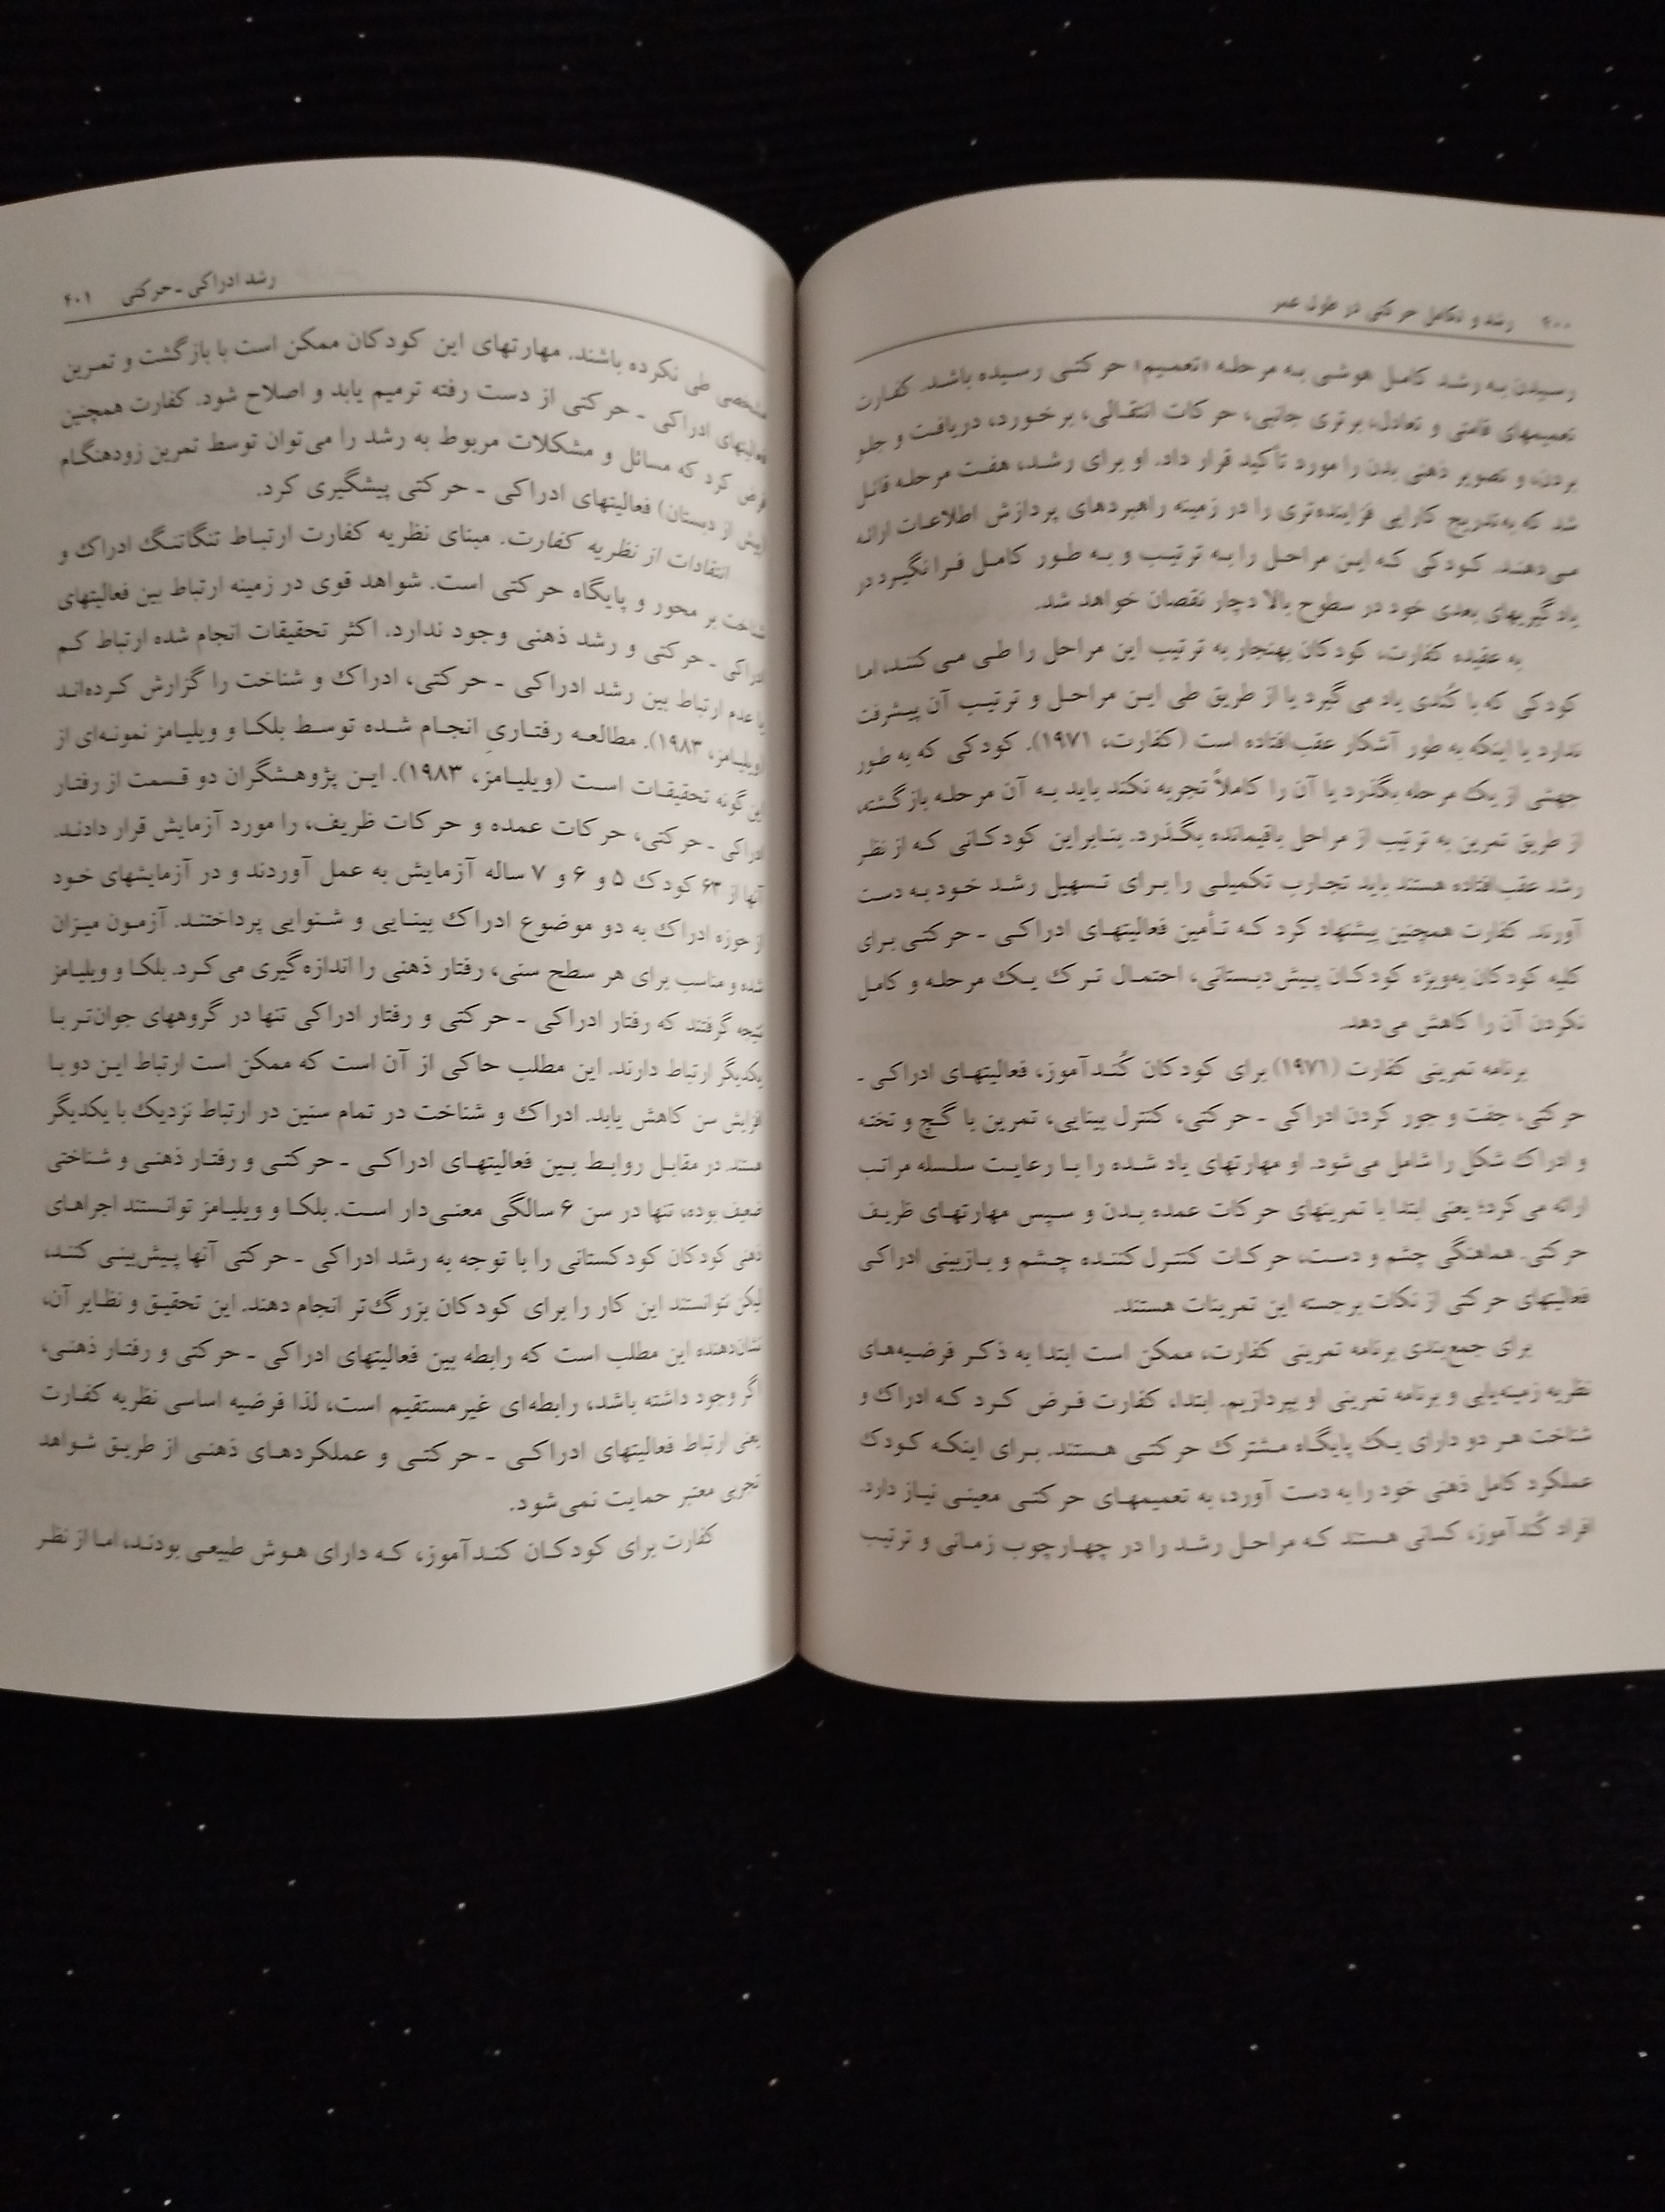 ۴۰۰ رشد و تکامل حرکتی در طول عمر
رسیدن به رشد کامل هوشی به مرحله «تعمیم» حرکتی رسیده باشد. کفارت
تعمیمهای قامتی و تعادل، برتری جانبی، حرکات انتقالی، برخورد، دریافت و جلو
بردن، و تصویر ذهنی بدن را مورد تأکید قرار داد. او برای رشد، هفت مرحله قائل
شد که به‌تدریج کارایی فزاینده‌تری را در زمینه راهبردهای پردازش اطلاعات ارائه
می‌دهند. کودکی که این مراحل را به ترتیب و به طور کامل فرا نگیرد در
یادگیریهای بعدی خود در سطوح بالا دچار نقصان خواهد شد.
به عقیده کفارت، کودکان بهنجار به ترتیب این مراحل را طی می‌کنند، اما
کودکی که با کُندی یاد می‌گیرد یا از طریق طی این مراحل و ترتیب آن پیشرفت
ندارد یا اینکه به طور آشکار عقب‌افتاده است (کفارت، ۱۹۷۱). کودکی که به طور
جهشی از یک مرحله بگذرد یا آن را کاملاً تجربه نکند باید به آن مرحله بازگشته،
از طریق تمرین به ترتیب از مراحل باقیمانده بگذرد. بنابراین کودکانی که از نظر
رشد عقب‌افتاده هستند باید تجارب تکمیلی را برای تسهیل رشد خود به دست
آورند. کفارت همچنین پیشنهاد کرد که تأمین فعالیتهای ادراکی - حرکتی برای
کلیه کودکان به‌ویژه کودکان پیش‌دبستانی، احتمال ترک یک مرحله و کامل
نکردن آن را کاهش می‌دهد.
برنامه تمرینی کفارت (۱۹۷۱) برای کودکان کُندآموز، فعالیتهای ادراکی -
حرکتی، جفت و جور کردن ادراکی - حرکتی، کنترل بینایی، تمرین با گچ و تخته
و ادراک شکل را شامل می‌شود. او مهارتهای یاد شده را با رعایت سلسله مراتب
ارائه می‌کرد؛ یعنی ابتدا با تمرینهای حرکات عمده بدن و سپس مهارتهای ظریف
حرکتی. هماهنگی چشم و دست، حرکات کنترل کننده چشم و بازبینی ادراکی
فعالیتهای حرکتی از نکات برجسته این تمرینات هستند.
برای جمع‌بندی برنامه تمرینی کفارت، ممکن است ابتدا به ذکر فرضیه‌های
نظریه زمینه‌یابی و برنامه تمرینی او بپردازیم. ابتدا، کفارت فرض کرد که ادراک و
شناخت هر دو دارای یک پایگاه مشترک حرکتی هستند. برای اینکه کودک
عملکرد کامل ذهنی خود را به دست آورد، به تعمیمهای حرکتی معینی نیاز دارد.
افراد کُندآموز، کسانی هستند که مراحل رشد را در چهارچوب زمانی و ترتیب
رشد ادراکی - حرکتی ۴۰۱
مشخصی طی نکرده باشند. مهارتهای این کودکان ممکن است با بازگشت و تمرین
فعالیتهای ادراکی - حرکتی از دست رفته ترمیم یابد و اصلاح شود. کفارت همچنین
فرض کرد که مسائل و مشکلات مربوط به رشد را می‌توان توسط تمرین زودهنگام
(پیش از دبستان) فعالیتهای ادراکی - حرکتی پیشگیری کرد.
انتقادات از نظریه کفارت. مبنای نظریه کفارت ارتباط تنگاتنگ ادراک و
شناخت بر محور و پایگاه حرکتی است. شواهد قوی در زمینه ارتباط بین فعالیتهای
ادراکی - حرکتی و رشد ذهنی وجود ندارد. اکثر تحقیقات انجام شده ارتباط کم
یا عدم ارتباط بین رشد ادراکی - حرکتی، ادراک و شناخت را گزارش کرده‌اند
(ویلیامز، ۱۹۸۳). مطالعه رفتاریِ انجام شده توسط بلکا و ویلیامز نمونه‌ای از
این گونه تحقیقات است (ویلیامز، ۱۹۸۳). این پژوهشگران دو قسمت از رفتار
ادراکی - حرکتی، حرکات عمده و حرکات ظریف، را مورد آزمایش قرار دادند.
آنها از ۶۳ کودک ۵ و ۶ و ۷ ساله آزمایش به عمل آوردند و در آزمایشهای خود
از حوزه ادراک به دو موضوع ادراک بینایی و شنوایی پرداختند. آزمون میزان
شده و مناسب برای هر سطح سنی، رفتار ذهنی را اندازه‌گیری می‌کرد. بلکا و ویلیامز
نتیجه گرفتند که رفتار ادراکی - حرکتی و رفتار ادراکی تنها در گروههای جوان‌تر با
یکدیگر ارتباط دارند. این مطلب حاکی از آن است که ممکن است ارتباط این دو با
افزایش سن کاهش یابد. ادراک و شناخت در تمام سنین در ارتباط نزدیک با یکدیگر
هستند. در مقابل روابط بین فعالیتهای ادراکی - حرکتی و رفتار ذهنی و شناختی
ضعیف بوده، تنها در سن ۶ سالگی معنی‌دار است. بلکا و ویلیامز توانستند اجراهای
ذهنی کودکان کودکستانی را با توجه به رشد ادراکی - حرکتی آنها پیش‌بینی کنند،
لیکن نتوانستند این کار را برای کودکان بزرگ‌تر انجام دهند. این تحقیق و نظایر آن،
نشان‌دهنده این مطلب است که رابطه بین فعالیتهای ادراکی - حرکتی و رفتار ذهنی،
اگر وجود داشته باشد، رابطه‌ای غیرمستقیم است، لذا فرضیه اساسی نظریه کفارت
یعنی ارتباط فعالیتهای ادراکی - حرکتی و عملکردهای ذهنی از طریق شواهد
تجربی معتبر حمایت نمی‌شود.
کفارت برای کودکان کندآموز، که دارای هوش طبیعی بودند، اما از نظر